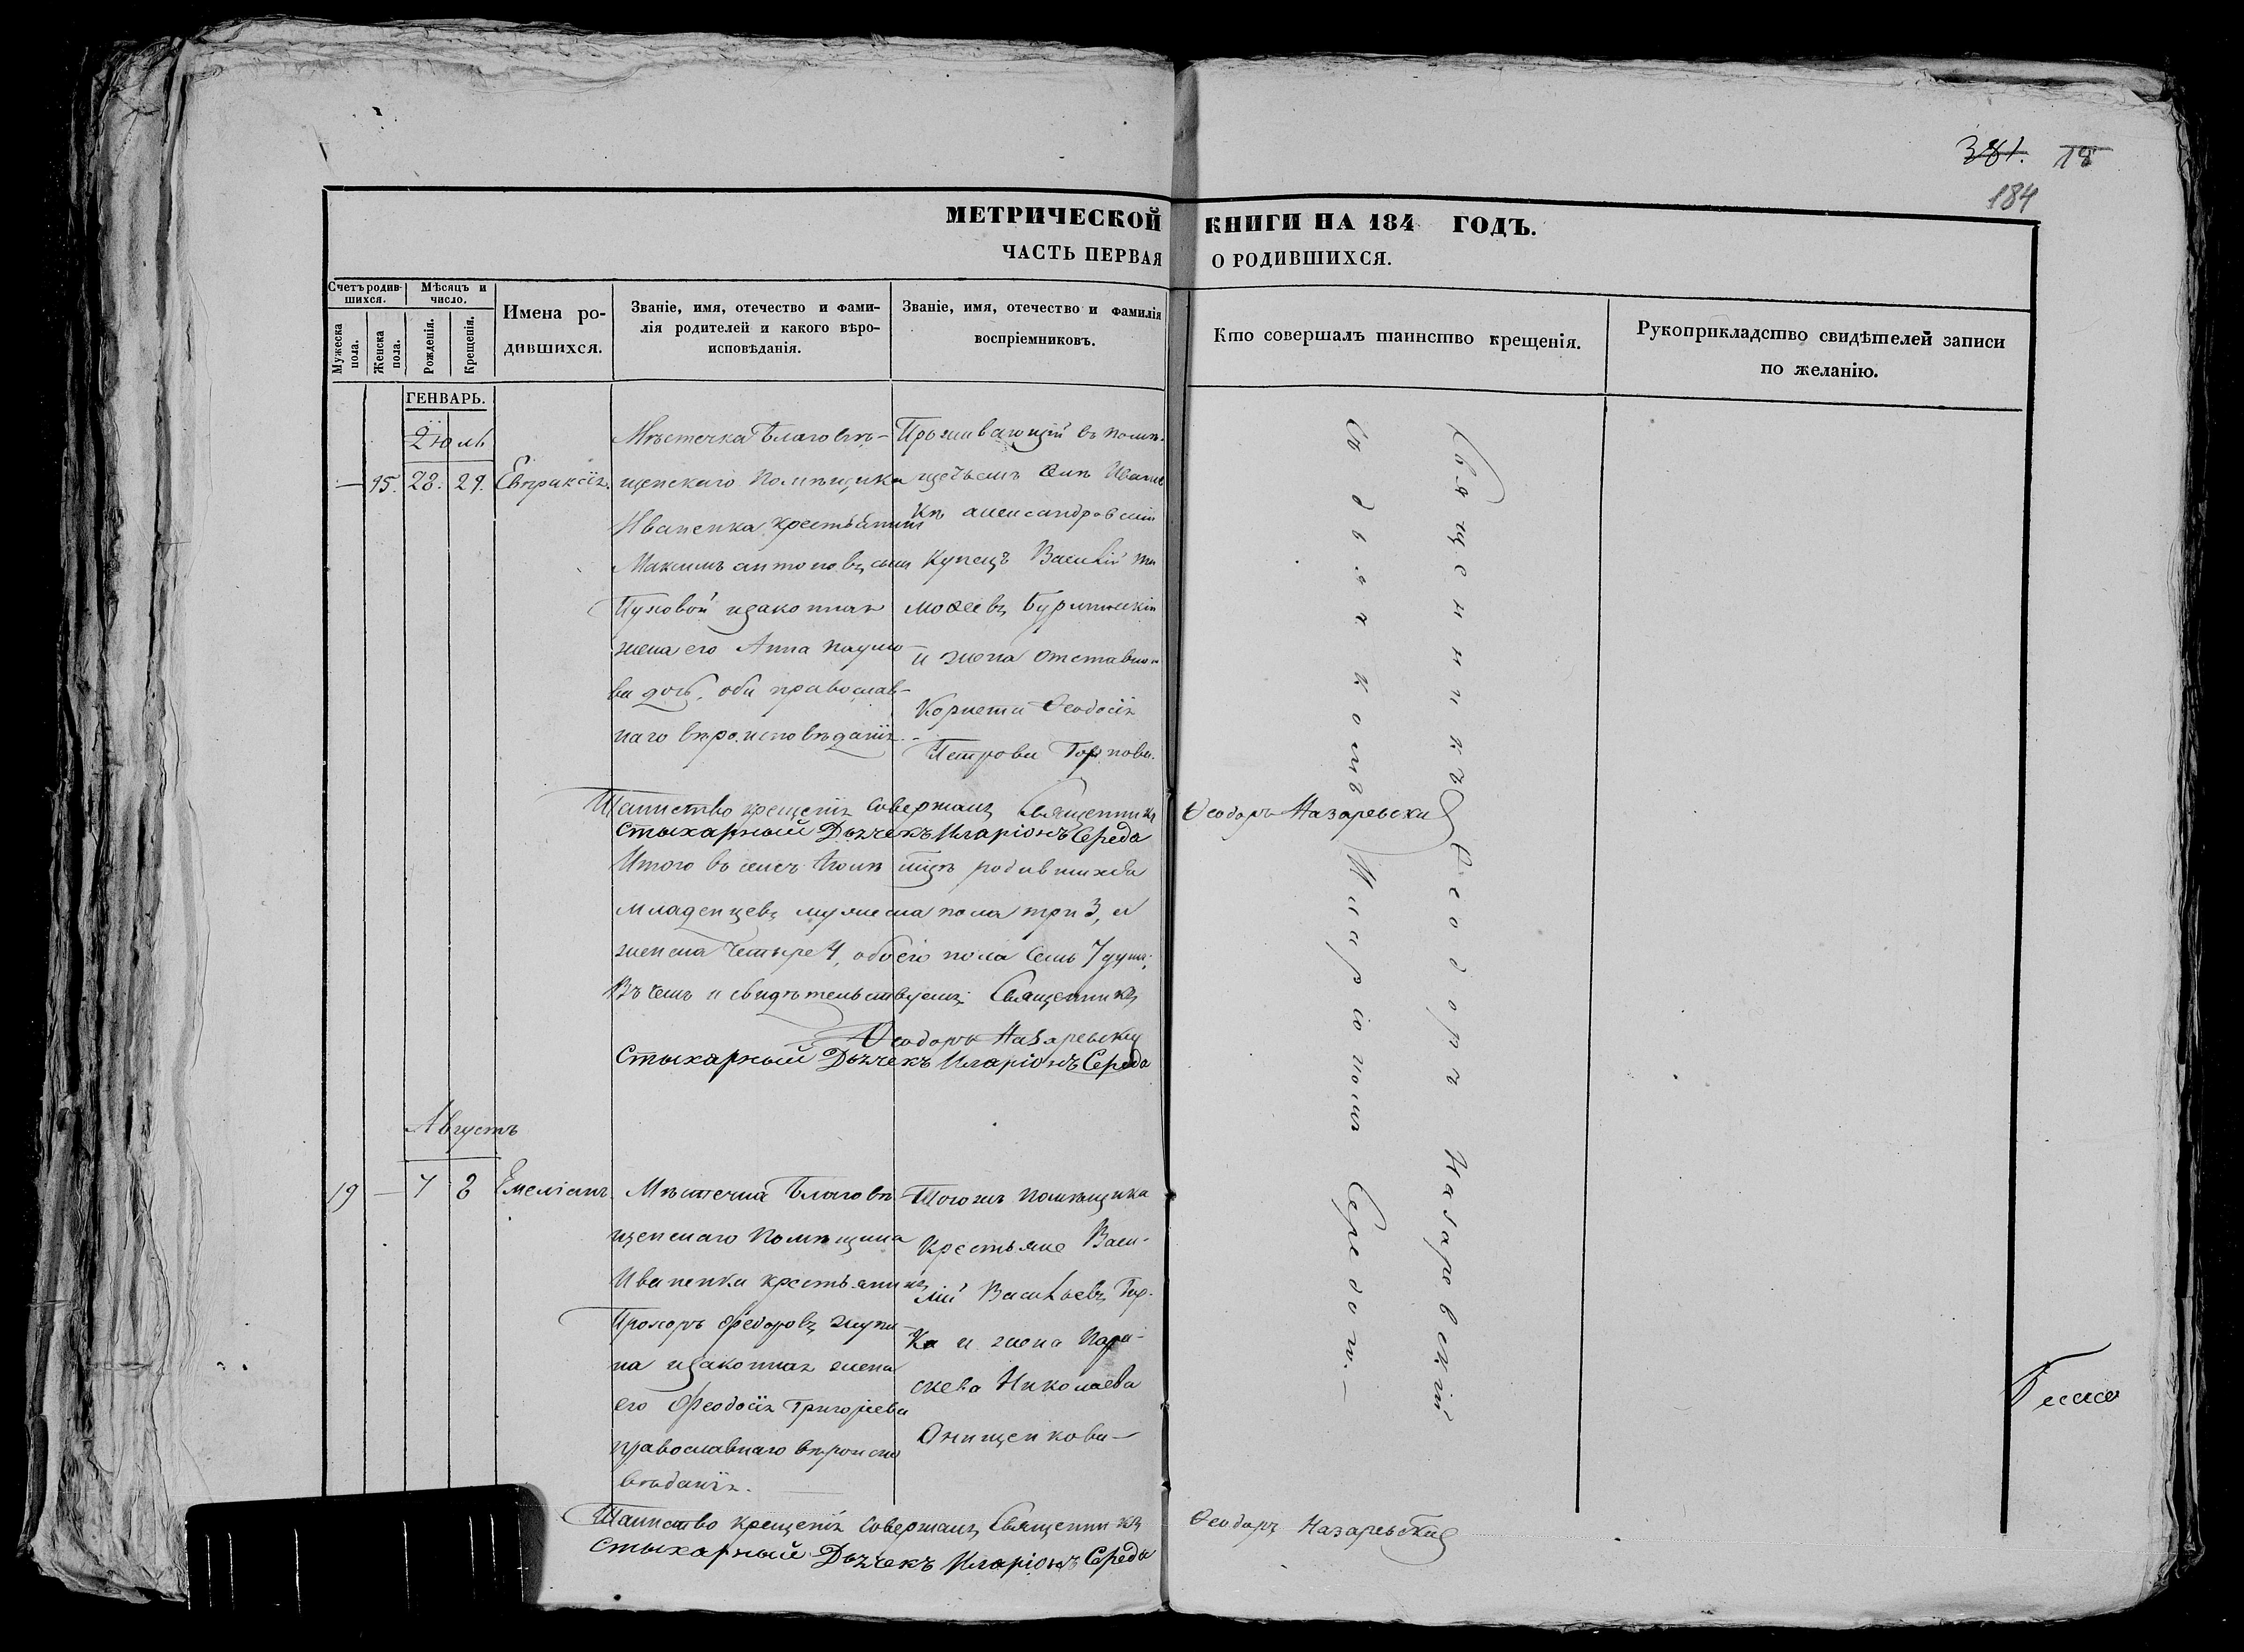 381. 18
184
МЕТРИЧЕСКОЙ КНИГИ НА 184 ГОДЪ.
ЧАСТЬ ПЕРВАЯ О РОДИВШИХСЯ.
Счетъ родив-
шихся.
Мѣсяцъ и
число.
Мужеска
пола.
Женска
пола.
Рожденія.
Крещенія.
Имена ро-
дившихся.
Званіе, имя, отечество и фами-
лія родителей и какого вѣро-
исповѣданія.
Званіе, имя, отечество и фамилія
воспріемниковъ.
Кто совершалъ таинство крещенія.
Рукоприкладство свидѣтелей записи
по желанію.
ГЕНВАРЬ.
Іюль
— 15. 28. 29. Евпраксія.
Мѣстечка Благовѣ-
щенскаго Помѣщика
Иваненка крестьянинъ
Максимъ антоновъ сынъ
Пуховой изаконная
жена его Анна Наумо-
ва дочь, оби православ-
наго вѣроисповѣданія.
Проживающій въ помѣ-
щечьемъ
александровскій
купецъ Василій Ти
мофеевъ
и жена отставнаго
Корнета Ѳеодосія
Петрова
Таинство крещенія совершалъ Священникъ Ѳеодоръ Назаревскій
Стихарный Дьячекъ Иларіонъ Середа
Итого въ семъ Іюлѣ мцѣ родившихся
младенцевъ мужеска пола три 3, а
женска четыре 4, обоего пола семь 7 душъ;
Въ чемъ и свидѣтельствуемъ Священникъ
Ѳеодоръ Назаревскій
Стихарный Дьячекъ Иларіонъ Середа
Августъ
19 — 7 8 Емеліанъ
Мѣстечка Благовѣ
щенскаго Помѣщика
Иваненка крестьянинъ
Прохоръ Ѳедоровъ
на изаконная жена
его Ѳеодосія Григоріева
православнаго вѣроиспо
вѣданія.
Тогожъ помѣщика
Крестьяне Васи-
лій Васильевъ
и жена Пара-
скева Николаева
Онищенкова
Таинство крещенія совершалъ Священникъ Ѳеодоръ Назаревскій
Стихарный Дьячекъ Иларіонъ Середа
Священникъ Ѳеодоръ Назаревскій
съ дьячкомъ Иларіономъ Середою.—